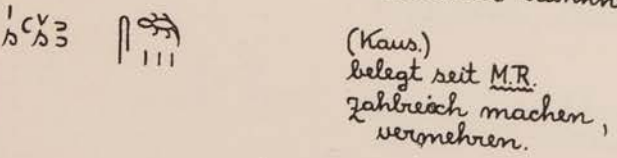 śꜥšꜣ 𓋴𓆈𓏥 (Kaus.)
belegt seit M.R.
zahlreich machen,
vermehren.